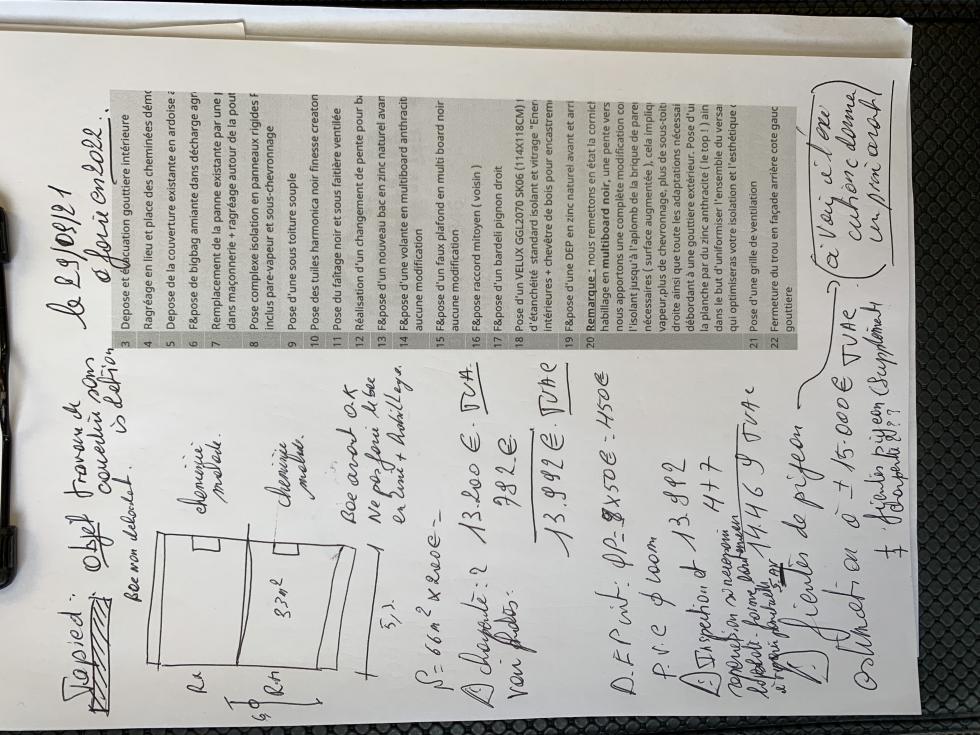 Tapied: Objet travaux de
toiture
le 29/09/21
à faire en 2022.
Bac non
cheminée
malade.
cheminée
malade.
Rd
R+1
33m²
5,2
Bac avant OK
Ne pas faire le bac
en zinc + habillage.
S = 66m² x 200€ =
charpente? 13.200€. TVA.
voir fuites: 792€.
13.992€. TVAC
D.EP int: PP = 9X50€ = 450€
P.V.C ϕ 100m
Inspection et 13.992
477
14.469 TVAC
fientes de pigeon
(à voir si l'on
en prime à noah)
estimation à ± 15.000€ TVAC
± fientes pigeon (supplément
charpente)??
3 Depose et évacuation gouttiere intérieure
4 Ragréage en lieu et place des cheminées démo
5 Depose de la couverture existante en ardoise a
6 F&pose de bigbag amiante dans décharge agr
7 Remplacement de la panne existante par une
dans maçonnerie + ragréage autour de la pout
8 Pose complexe isolation en panneaux rigides
inclus pare-vapeur et sous-chevronnage
9 Pose d'une sous toiture souple
10 Pose des tuiles harmonica noir finesse creaton
11 Pose du faitage noir et sous faitière ventilée
12 Réalisation d'un changement de pente pour ba
13 F&pose d'un nouveau bac en zinc naturel avan
14 F&pose d'une volante en multiboard anthracit
aucune modification
15 F&pose d'un faux plafond en multi board noir
aucune modification
16 F&pose raccord mitoyen ( voisin )
17 F&pose d'un bardeli pignon droit
18 Pose d'un VELUX GGL2070 SK06 (114X118CM)
d'étanchéité standard isolant et vitrage "Ener
intérieures + chevêtre de bois pour encastrem
19 F&pose d'une DEP en zinc naturel avant et arri
20 Remarque : nous remettons en état la cornich
habillage en multiboard noir, une pente vers
nous apportons une complète modification co
l'isolant jusqu'à l'aplomb de la brique de pare
nécessaires ( surface augmentée ), cela impliq
vapeur,plus de chevronnage, plus de sous-toit
droite ainsi que toute les adaptations nécessai
débordant à une gouttiere extérieur. Pose d'u
la planche par du zinc anthracite ( le top ! ) ain
dans le but d'uniformiser l'ensemble du versa
qui optimiseras votre isolation et l'esthétique
21 Pose d'une grille de ventilation
22 Fermeture du trou en façade arrière coté gauc
gouttiere